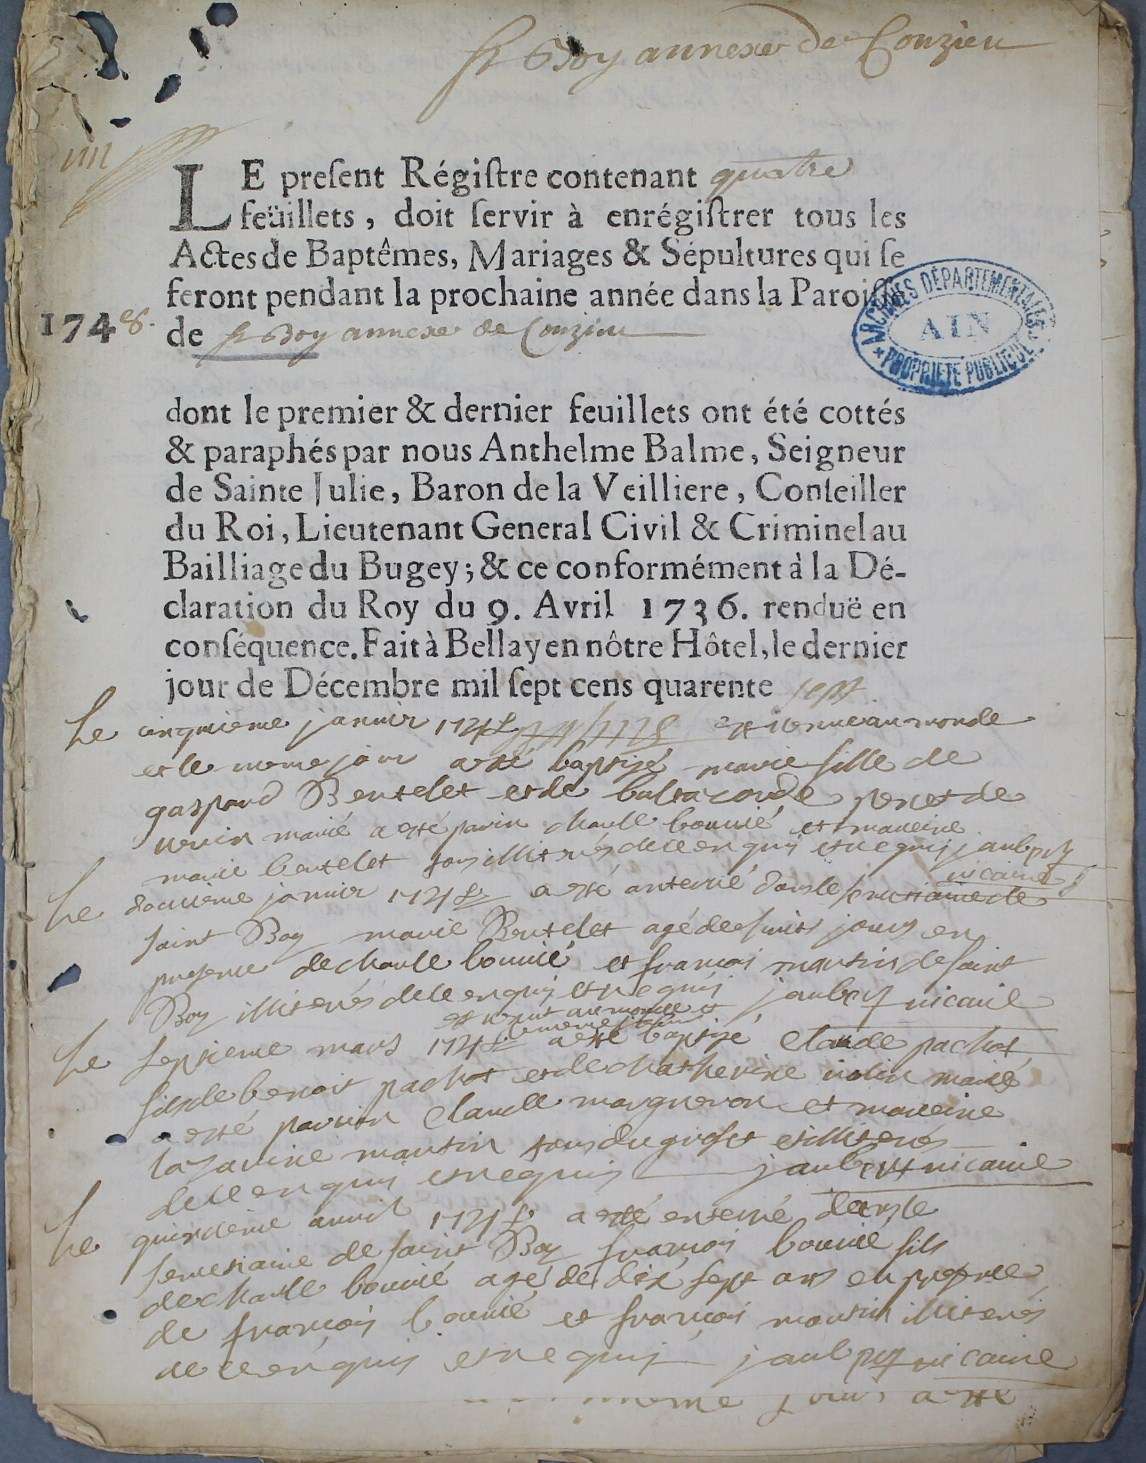 St Boy annexe de Conzieu
IIII
LE present Régistre contenant quatre
feüillets, doit servir à enrégistrer tous les
Actes de Baptêmes, Mariages & Sépultures qui se
feront pendant la prochaine année dans la Paroisse
1748.
de St Boy annexe de Conzieu
ARCHIVES DÉPARTEMENTALES
AIN
PROPRIÉTÉ PUBLIQUE
dont le premier & dernier feuillets ont été cottés
& paraphés par nous Anthelme Balme, Seigneur
de Sainte Julie, Baron de la Veilliere, Conseiller
du Roi, Lieutenant General Civil & Criminel au
Bailliage du Bugey; & ce conformément à la Dé-
claration du Roy du 9. Avril 1736. renduë en
conséquence. Fait à Bellay en nôtre Hôtel, le dernier
jour de Décembre mil sept cens quarente sept
Le cinquieme janvier 1748 est venue au monde
et le meme jour a esté baptisé marie fille de
gaspard Bertelet et de
marié a esté parin charle bouvié et mareine
marie bertelet tous illiterés de ce enquis et requis jaubert
vicaire
Le douzieme janvier 1748 a esté enterré dans le semetiaire de
saint Boy marie Bertelet agé de huit jours en
presence de charle bouvié et francois martin de saint
Boy illiterés de ce enquis et requis jaubert vicaire
est venu au monde et
le meme jour
Le septieme mars 1748 a esté baptisé claude pachot
fils de benoit pachot et de chatherine marié
a esté parein claude margueron et mareine
martin tous du et illiterés
de ce enquis et requis jaubert vicaire
Le quinzieme avril 1748 a esté enterré dans le
semetiaire de saint Boy francois bouvié fils
de charle bouvié agé de dix sept ans en presence
de francois bouvié et francois martin illiterés
de ce enquis et requis jaubert vicaire
meme jour a esté